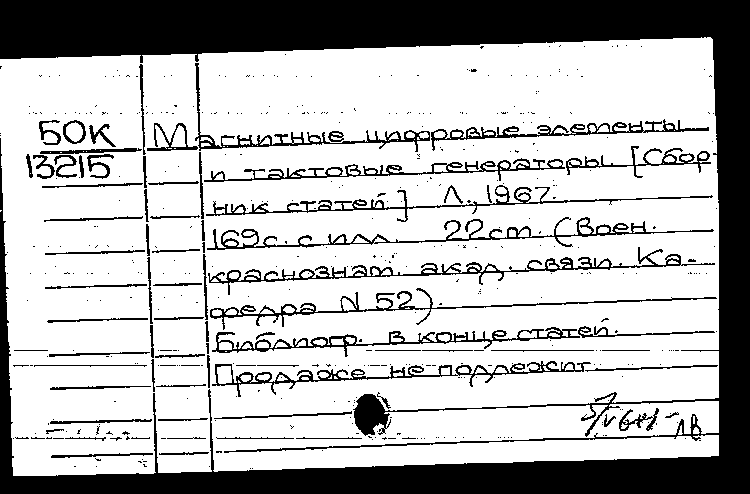 50К Магнитные цифровые элементы
13215 и тактовые генераторы. [Сбор-
ник статей] Л., 1967.
169с. с илл. 22см. (Воен.
краснознам. акад. связи. Ка-
федра N 52).
Библиогр. в конце статей.
Продаже не подлежит.